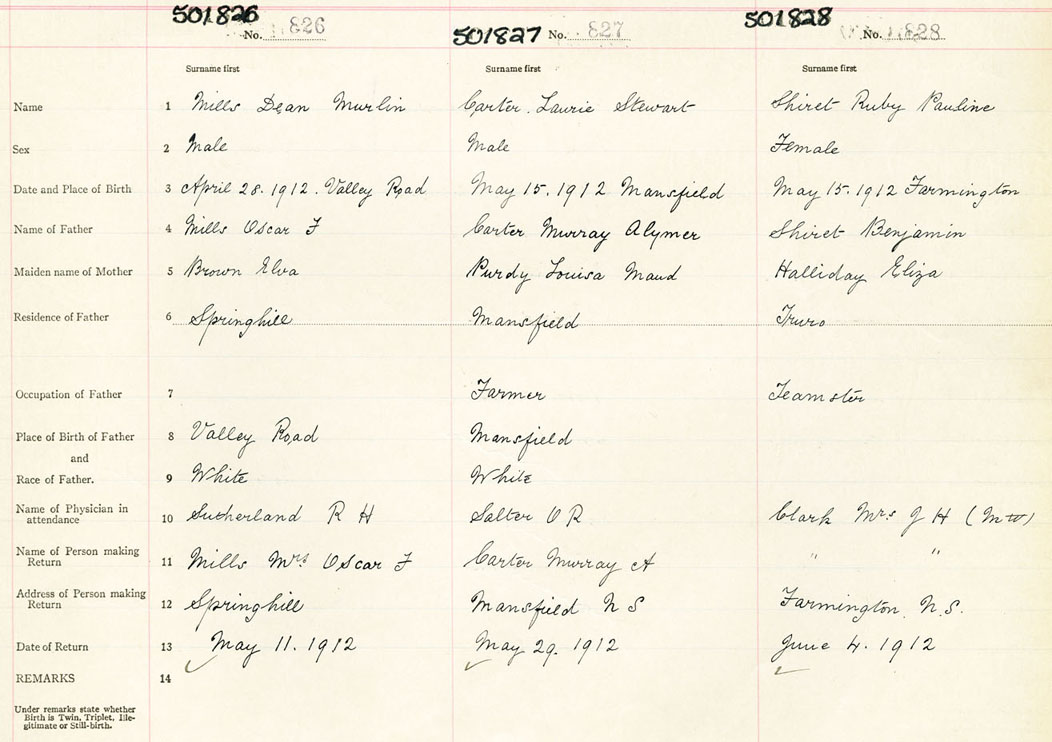 501826 No. 826 501827 No. 827 501828 No. 828
Surname first Surname first Surname first
Name 1 Mills Dean Murlin Carter. Laurie Stewart Shiret Ruby Pauline
Sex 2 Male Male Female
Date and Place of Birth 3 April 28. 1912. Valley Road May 15. 1912 Mansfield May 15. 1912 Farmington
Name of Father 4 Mills Oscar F Carter Murray Alymer Shiret Benjamin
Maiden name of Mother 5 Brown Elva Purdy Louisa Maud Halliday Eliza
Residence of Father 6 Springhill Mansfield Truro
Occupation of Father 7 Farmer Teamster
Place of Birth of Father 8 Valley Road Mansfield
and
Race of Father. 9 White White
Name of Physician in
attendance 10 Sutherland R H Salter O R Clark Mrs J H (MW)
Name of Person making
Return 11 Mills Mrs Oscar F Carter Murray A " "
Address of Person making
Return 12 Springhill Mansfield N S Farmington. N.S.
Date of Return 13 May 11. 1912 May 29. 1912 June 4. 1912
REMARKS 14
Under remarks state whether
Birth is Twin, Triplet, Ille-
gitimate or Still-birth.